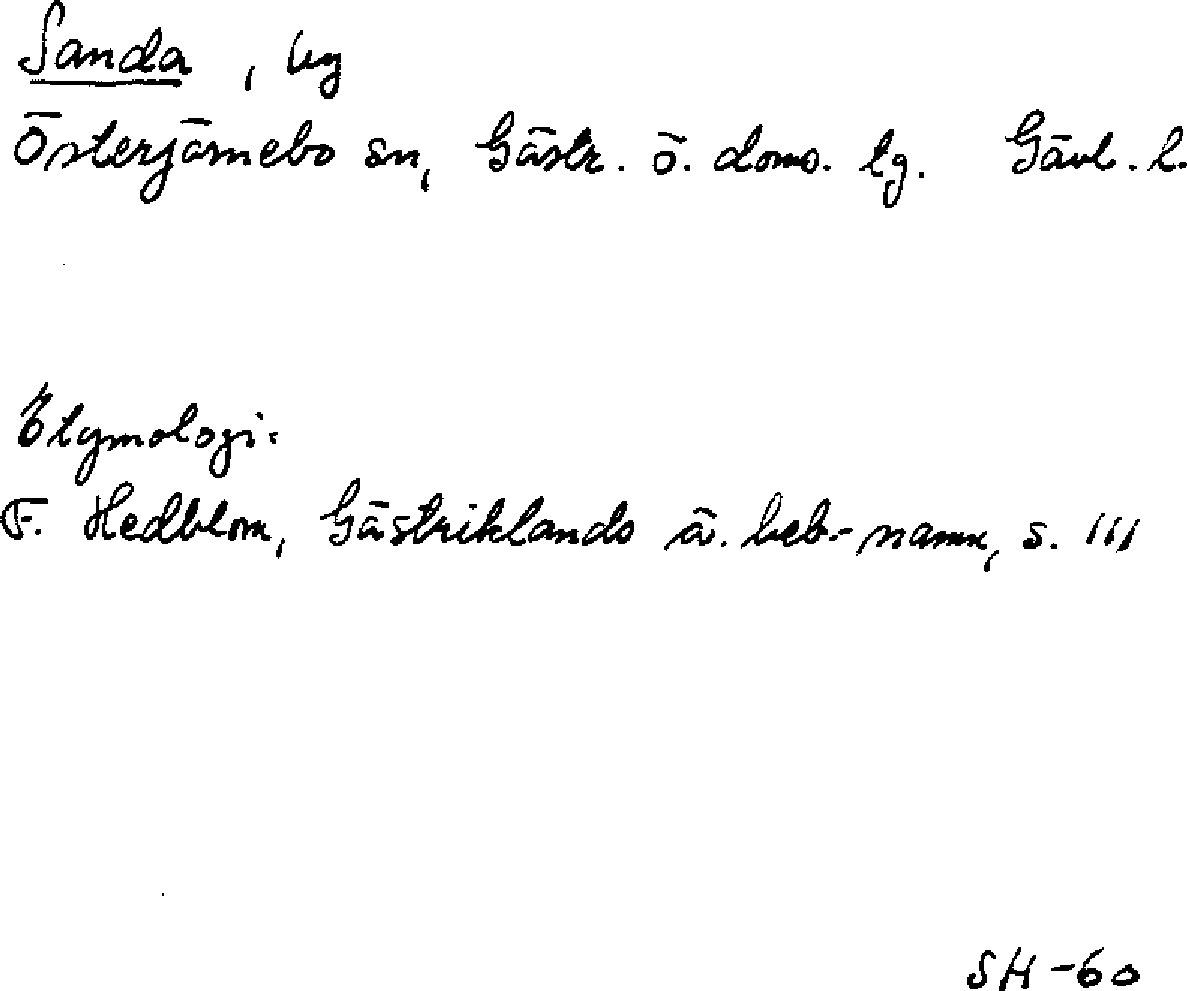 Sanda, by
Österfärnebo sn, Gästr. ö. doms. tg. Gävl. l.
Etymologi:
F. Hedblom, Gästriklands ä. beb.-namn, s. 111
SH-60